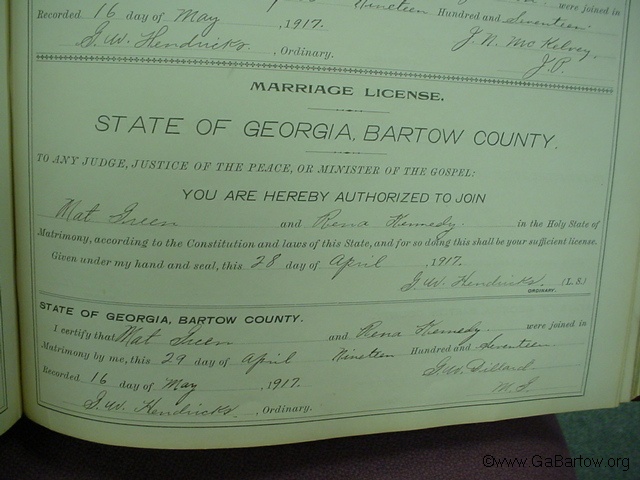 were joined in
Nineteen Hundred and Seventeen.
Recorded 16 day of May , 1917. J. N. McKelvey,
G. W. Hendricks , Ordinary. J. P.
MARRIAGE LICENSE.
STATE OF GEORGIA, BARTOW COUNTY.
TO ANY JUDGE, JUSTICE OF THE PEACE, OR MINISTER OF THE GOSPEL:
YOU ARE HEREBY AUTHORIZED TO JOIN
Mat Green and Rena Kennedy in the Holy State of
Matrimony, according to the Constitution and laws of this State, and for so doing this shall be your sufficient license.
Given under my hand and seal, this 28 day of April , 1917.
G. W. Hendricks. (L. S.)
ORDINARY.
STATE OF GEORGIA, BARTOW COUNTY.
I certify that Mat Green and Rena Kennedy were joined in
Matrimony by me, this 29 day of April Nineteen Hundred and Seventeen.
Recorded 16 day of May , 1917. G. W. Dillard.
G. W. Hendricks , Ordinary. M. G.
©www.GaBartow.org